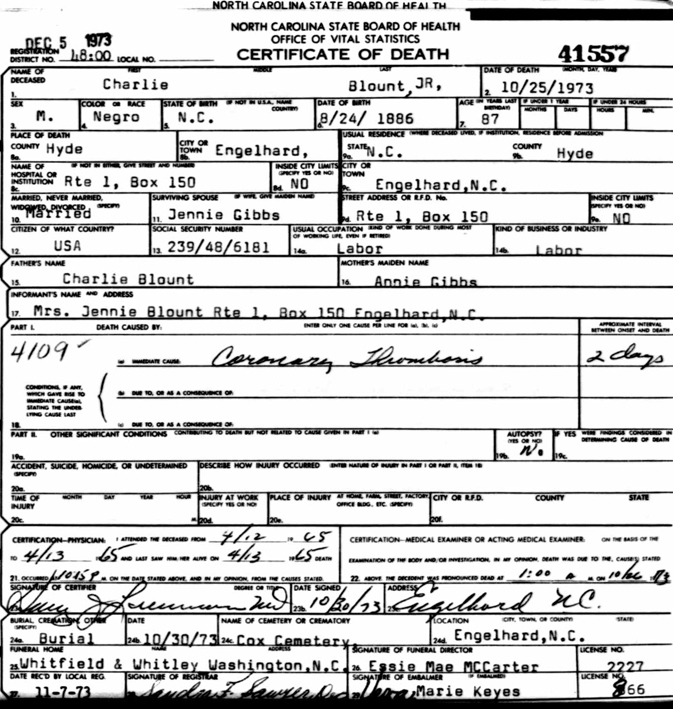 NORTH CAROLINA STATE BOARD OF HEALTH
NORTH CAROLINA STATE BOARD OF HEALTH
OFFICE OF VITAL STATISTICS
DEC 5 1973
CERTIFICATE OF DEATH
41557
REGISTRATION DISTRICT NO. 48:00 LOCAL NO.
NAME OF DECEASED FIRST MIDDLE LAST DATE OF DEATH (MONTH, DAY, YEAR)
1. Charlie Blount, JR, 2. 10/25/1973
SEX COLOR OR RACE STATE OF BIRTH (IF NOT IN U.S.A., NAME COUNTRY) DATE OF BIRTH AGE (IN YEARS LAST BIRTHDAY) IF UNDER 1 YEAR MONTHS DAYS IF UNDER 24 HOURS HOURS MIN.
3. M. 4. Negro 5. N.C. 6. 8/24/ 1886 7. 87
PLACE OF DEATH USUAL RESIDENCE (WHERE DECEASED LIVED, IF INSTITUTION, RESIDENCE BEFORE ADMISSION)
8a. COUNTY Hyde 8b. CITY OR TOWN Engelhard, 9a. STATE N.C. 9b. COUNTY Hyde
NAME OF HOSPITAL OR INSTITUTION (IF NOT IN EITHER, GIVE STREET AND NUMBER) INSIDE CITY LIMITS (SPECIFY YES OR NO) CITY OR TOWN
8c. Rte 1, Box 150 8d. NO 9c. Engelhard,N.C.
MARRIED, NEVER MARRIED, WIDOWED, DIVORCED (SPECIFY) SURVIVING SPOUSE (IF WIFE, GIVE MAIDEN NAME) STREET ADDRESS OR R.F.D. No. INSIDE CITY LIMITS (SPECIFY YES OR NO)
10. Married 11. Jennie Gibbs 9d. Rte 1, Box 150 9e. NO
CITIZEN OF WHAT COUNTRY? SOCIAL SECURITY NUMBER USUAL OCCUPATION (KIND OF WORK DONE DURING MOST OF WORKING LIFE, EVEN IF RETIRED) KIND OF BUSINESS OR INDUSTRY
12. USA 13. 239/48/6181 14a. Labor 14b. Labor
FATHER'S NAME MOTHER'S MAIDEN NAME
15. Charlie Blount 16. Annie Gibbs
INFORMANT'S NAME AND ADDRESS
17. Mrs. Jennie Blount Rte 1, Box 150 Engelhard,N.C.
PART I. DEATH CAUSED BY: ENTER ONLY ONE CAUSE PER LINE FOR (a), (b), (c) APPROXIMATE INTERVAL BETWEEN ONSET AND DEATH
4109 (a) IMMEDIATE CAUSE: Coronary Thrombosis 2 days
CONDITIONS, IF ANY, WHICH GAVE RISE TO IMMEDIATE CAUSE(a), STATING THE UNDERLYING CAUSE LAST
(b) DUE TO, OR AS A CONSEQUENCE OF:
18. (c) DUE TO, OR AS A CONSEQUENCE OF:
PART II. OTHER SIGNIFICANT CONDITIONS CONTRIBUTING TO DEATH BUT NOT RELATED TO CAUSE GIVEN IN PART I (a) AUTOPSY? (YES OR NO) IF YES WERE FINDINGS CONSIDERED IN DETERMINING CAUSE OF DEATH
19a. 19b. No 19c.
ACCIDENT, SUICIDE, HOMICIDE, OR UNDETERMINED (SPECIFY) DESCRIBE HOW INJURY OCCURRED (ENTER NATURE OF INJURY IN PART I OR PART II, ITEM 18)
20a. 20b.
TIME OF INJURY MONTH DAY YEAR HOUR INJURY AT WORK (SPECIFY YES OR NO) PLACE OF INJURY AT HOME, FARM, STREET, FACTORY, OFFICE BLDG., ETC. (SPECIFY) CITY OR R.F.D. COUNTY STATE
20c. 20d. 20e. 20f.
CERTIFICATION-PHYSICIAN: I ATTENDED THE DECEASED FROM 4/12 1965 CERTIFICATION-MEDICAL EXAMINER OR ACTING MEDICAL EXAMINER: ON THE BASIS OF THE
TO 4/13 1965 AND LAST SAW HIM/HER ALIVE ON 4/13 1965 DEATH EXAMINATION OF THE BODY AND/OR INVESTIGATION, IN MY OPINION, DEATH WAS DUE TO THE CAUSE(S) STATED
21. OCCURRED M. ON THE DATE STATED ABOVE, AND IN MY OPINION, FROM THE CAUSES STATED 22. ABOVE. THE DECEDENT WAS PRONOUNCED DEAD AT 1:00 M. ON 10/26 1973
SIGNATURE OF CERTIFIER DEGREE OR TITLE DATE SIGNED ADDRESS
MD 23b. 10/30/73 Engelhard N.C.
BURIAL, CREMATION, OTHER (SPECIFY) DATE NAME OF CEMETERY OR CREMATORY LOCATION (CITY, TOWN, OR COUNTY) (STATE)
24a. Burial 24b. 10/30/73 24c. Cox Cemetery, 24d. Engelhard,N.C.
FUNERAL HOME NAME ADDRESS SIGNATURE OF FUNERAL DIRECTOR LICENSE NO.
25. Whitfield & Whitley Washington,N.C. 26. Essie Mae MCCarter 2227
DATE REC'D BY LOCAL REG. SIGNATURE OF REGISTRAR SIGNATURE OF EMBALMER (IF EMBALMED) LICENSE NO.
11-7-73 Sandra F. Marie Keyes 866